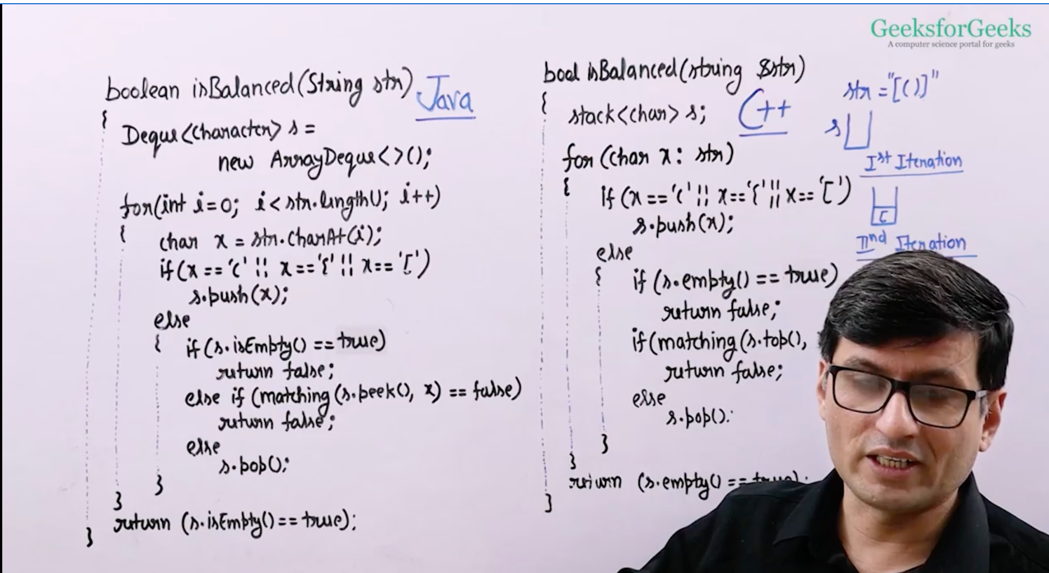 GeeksforGeeks
A computer science portal for geeks
boolean isBalanced(String str)
Java
{
Deque<Character> s =
new ArrayDeque<>();
for(int i=0; i<str.length(); i++)
{
char x = str.charAt(i);
if(x=='(' || x=='{' || x=='[')
s.push(x);
else
{
if(s.isEmpty()==true)
return false;
else if (matching(s.peek(), x) == false)
return false;
else
s.pop();
}
}
return (s.isEmpty()==true);
}
bool isBalanced(string &str)
C++
{
stack<char> s;
for (char x: str)
{
if(x=='(' || x=='{' || x=='[')
s.push(x);
else
{
if (s.empty() == true)
return false;
if(matching(s.top(),
return false;
else
s.pop();
}
}
return (s.empty() == true);
}
str = "[()]"
s
Ist Iteration
[
IInd Iteration